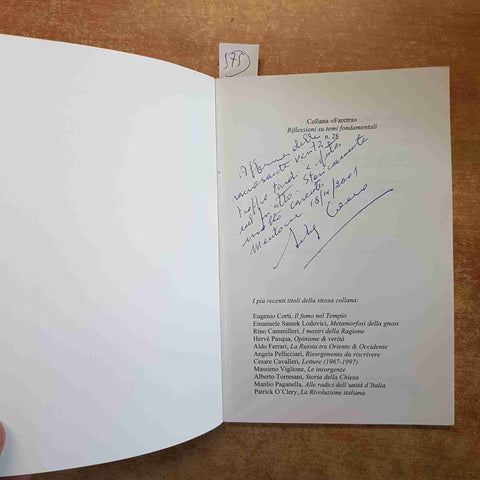 575
Collana «Faretra»
Riflessioni su temi fondamentali
n. 28
delle
verità
troppo tardi
storicamente
Mantova 18/
I più recenti titoli della stessa collana:
Eugenio Corti, Il fumo nel Tempio
Emanuele Samek Lodovici, Metamorfosi della gnosi
Rino Cammilleri, I mostri della Ragione
Hervé Pasqua, Opinione & verità
Aldo Ferrari, La Russia tra Oriente & Occidente
Angela Pellicciari, Risorgimento da riscrivere
Cesare Cavalleri, Letture (1967-1997)
Massimo Viglione, Le insorgenze
Alberto Torresani, Storia della Chiesa
Manlio Paganella, Alle radici dell'unità d'Italia
Patrick O'Clery, La Rivoluzione italiana